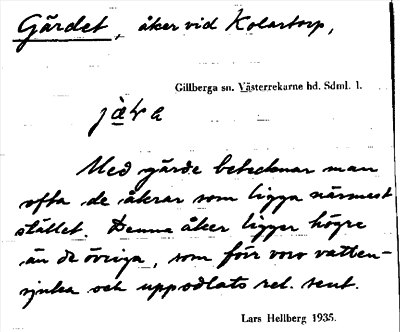 Gärdet, åker vid Kolartorp,
Gillberga sn. Västerrekarne hd. Sdml. l.
Med gärde betecknar man
ofta de åkrar som ligga närmest
stället. Denna åker ligger högre
än de övriga, som förr voro vatten-
sjuka och uppodlats rel. sent.
Lars Hellberg 1935.